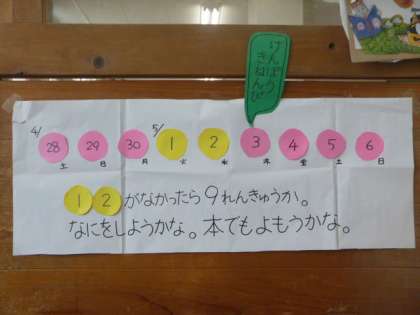 けんぽう
きねんび
4/ 28 29 30 5/ 1 2 3 4 5 6
土 日 月 火 水 木 金 土 日
1 2 がなかったら9れんきゅうか。
なにをしようかな。本でもよもうかな。